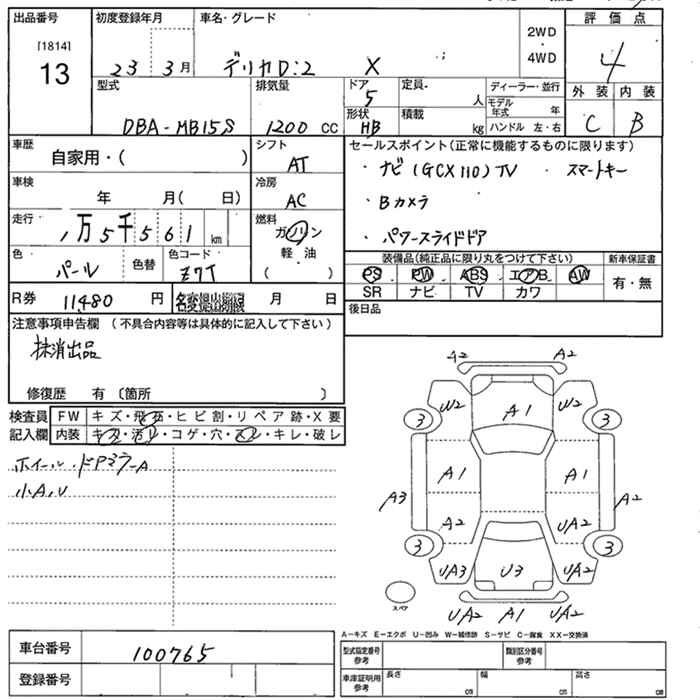 出品番号 初度登録年月 車名・グレード 2WD・4WD 評価点
[1814]
13 23 3月 デリカD:2 X 4
型式 排気量 ドア 5 定員 人 ディーラー・並行 外装 内装
DBA-MB15S 1200 cc 形状 HB 積載 kg モデル年式 年 ハンドル 左・右 C B
車歴 シフト セールスポイント(正常に機能するものに限ります)
自家用・( ) AT ・ナビ(GCX110)TV ・スマートキー
車検 年 月( 日) 冷房 AC ・Bカメラ
走行 1万5千561km 燃料 ガソリン ・パワースライドドア
色 パール 色替 色コード Z7T 軽・油 ( ) 装備品(純正品に限り丸をつけて下さい) 新車保証書
PS PW ABS エアB AW 有・無
R券 11480 円 名変提出期限 月 日 SR ナビ TV カワ
注意事項申告欄 (不具合内容等は具体的に記入して下さい) 後日品
抹消出品
修復歴 有 〔箇所 〕
検査員 FW キズ・飛石・ヒビ割・リペア跡・X要
記入欄 内装 キズ・汚レ・コゲ・穴・スレ・キレ・破レ
ホイール・ドアミラーA
小A,U
A2 A2
W2 A1 W2
3 3
A3 A1 A1 A2
A2 UA2
3 3
UA3 U3 UA2
スペア UA2 A1 UA2
A-キズ E-エクボ U-凹み W-補修跡 S-サビ C-腐食 XX-交換済
車台番号 100765 型式指定番号 参考 類別区分番号 参考
登録番号 車庫証明用 参考 長さ cm 幅 cm 高さ cm